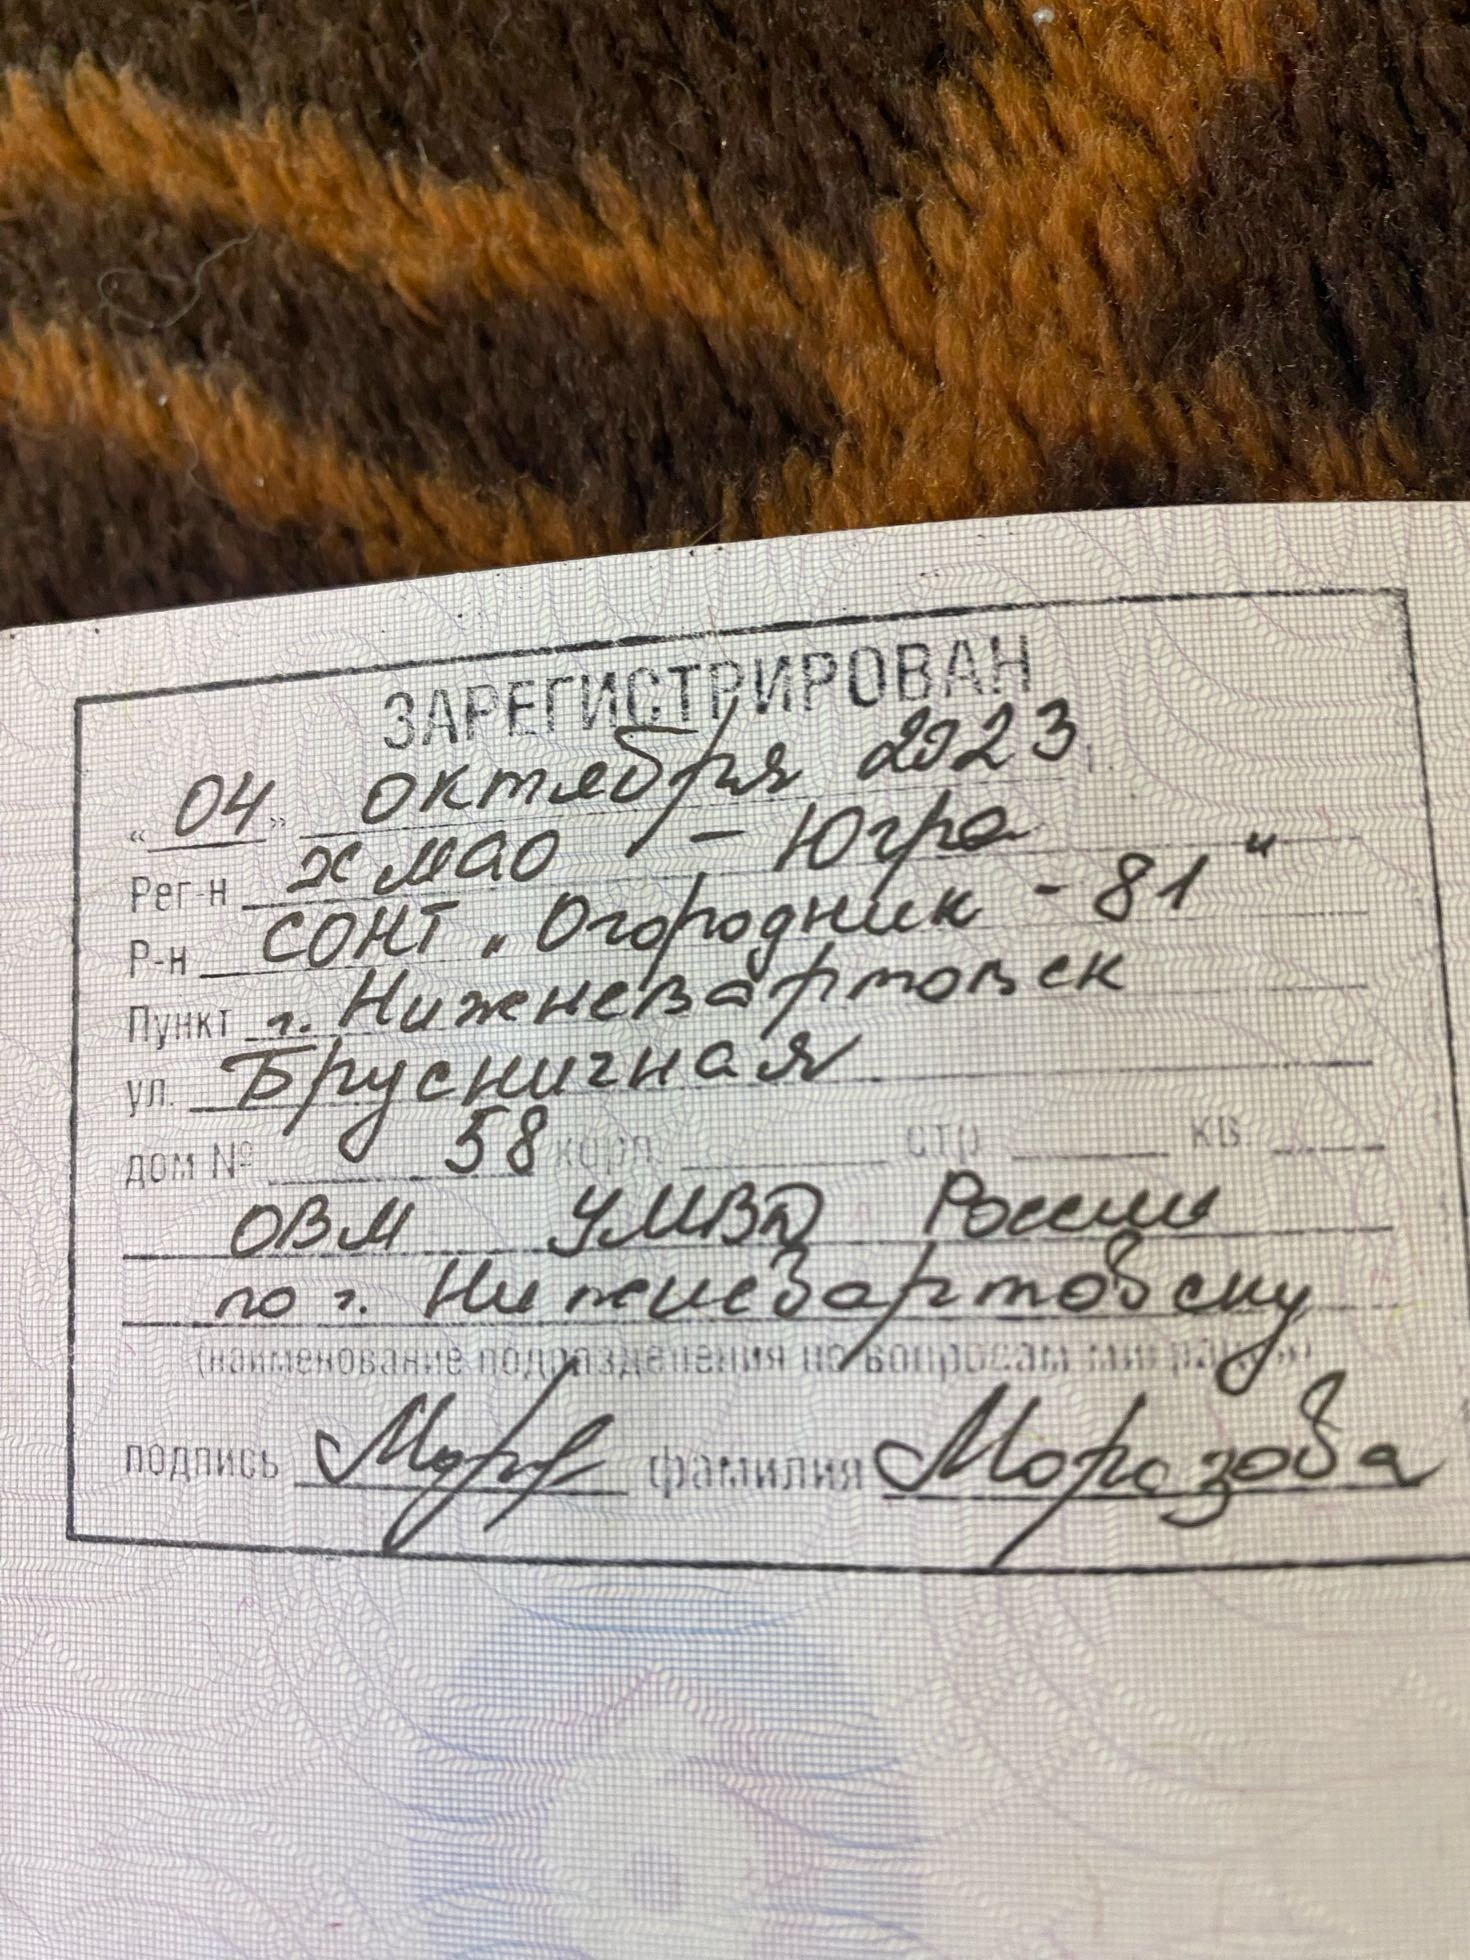 ЗАРЕГИСТРИРОВАН
"04" октября 2023 г.
Рег-н ХМАО - Югра
Р-н СОНТ "Огородник - 81"
Пункт г. Нижневартовск
ул. Брусничная
дом № 58 корп. стр. кв.
ОВМ УМВД России
по г. Нижневартовску
(наименование подразделения по вопросам миграции)
подпись фамилия Морозова